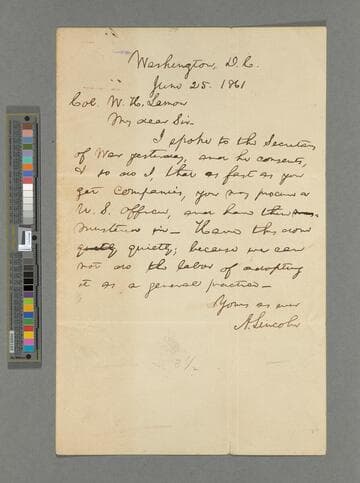 Washington, D.C.
June 25. 1861
Col. W. H. Lamon
My dear Sir.
I spoke to the Secretary
of War yesterday, and he consents,
& so do I, that as fast as you
get Companies, you may procure a
U. S. officer, and have them
mustered in — Have this done
quietly quietly; because we can
not do the labor of adopting
it as a general practice —
Yours as ever
A. Lincoln